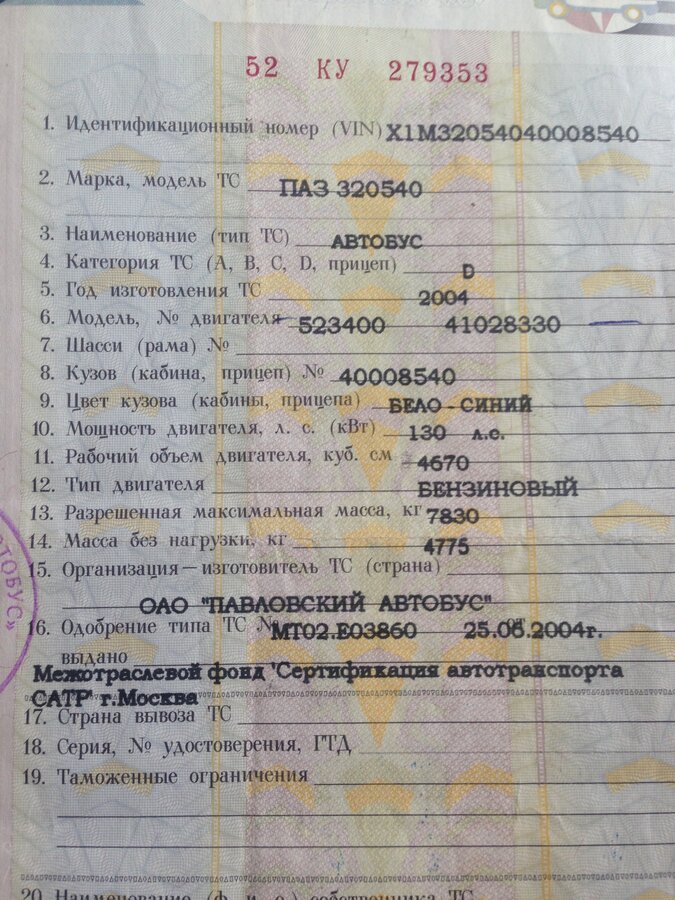 52 КУ 279353
1. Идентификационный номер (VIN) X1M32054040008540
2. Марка, модель ТС ПАЗ 320540
3. Наименование (тип ТС) АВТОБУС
4. Категория ТС (A, B, C, D, прицеп) D
5. Год изготовления ТС 2004
6. Модель, № двигателя 523400 41028330
7. Шасси (рама) №
8. Кузов (кабина, прицеп) № 40008540
9. Цвет кузова (кабины, прицепа) БЕЛО - СИНИЙ
10. Мощность двигателя, л. с. (кВт) 130 л.с.
11. Рабочий объем двигателя, куб. см 4670
12. Тип двигателя БЕНЗИНОВЫЙ
13. Разрешенная максимальная масса, кг 7830
14. Масса без нагрузки, кг 4775
15. Организация—изготовитель ТС (страна)
ОАО "ПАВЛОВСКИЙ АВТОБУС"
16. Одобрение типа ТС № МТ02.Е03860 от 25.06.2004г.
выдано
Межотраслевой фонд "Сертификация автотранспорта
САТР" г.Москва
17. Страна вывоза ТС
18. Серия, № удостоверения, ГТД
19. Таможенные ограничения
20. Наименование (ф. и. о.) собственника ТС